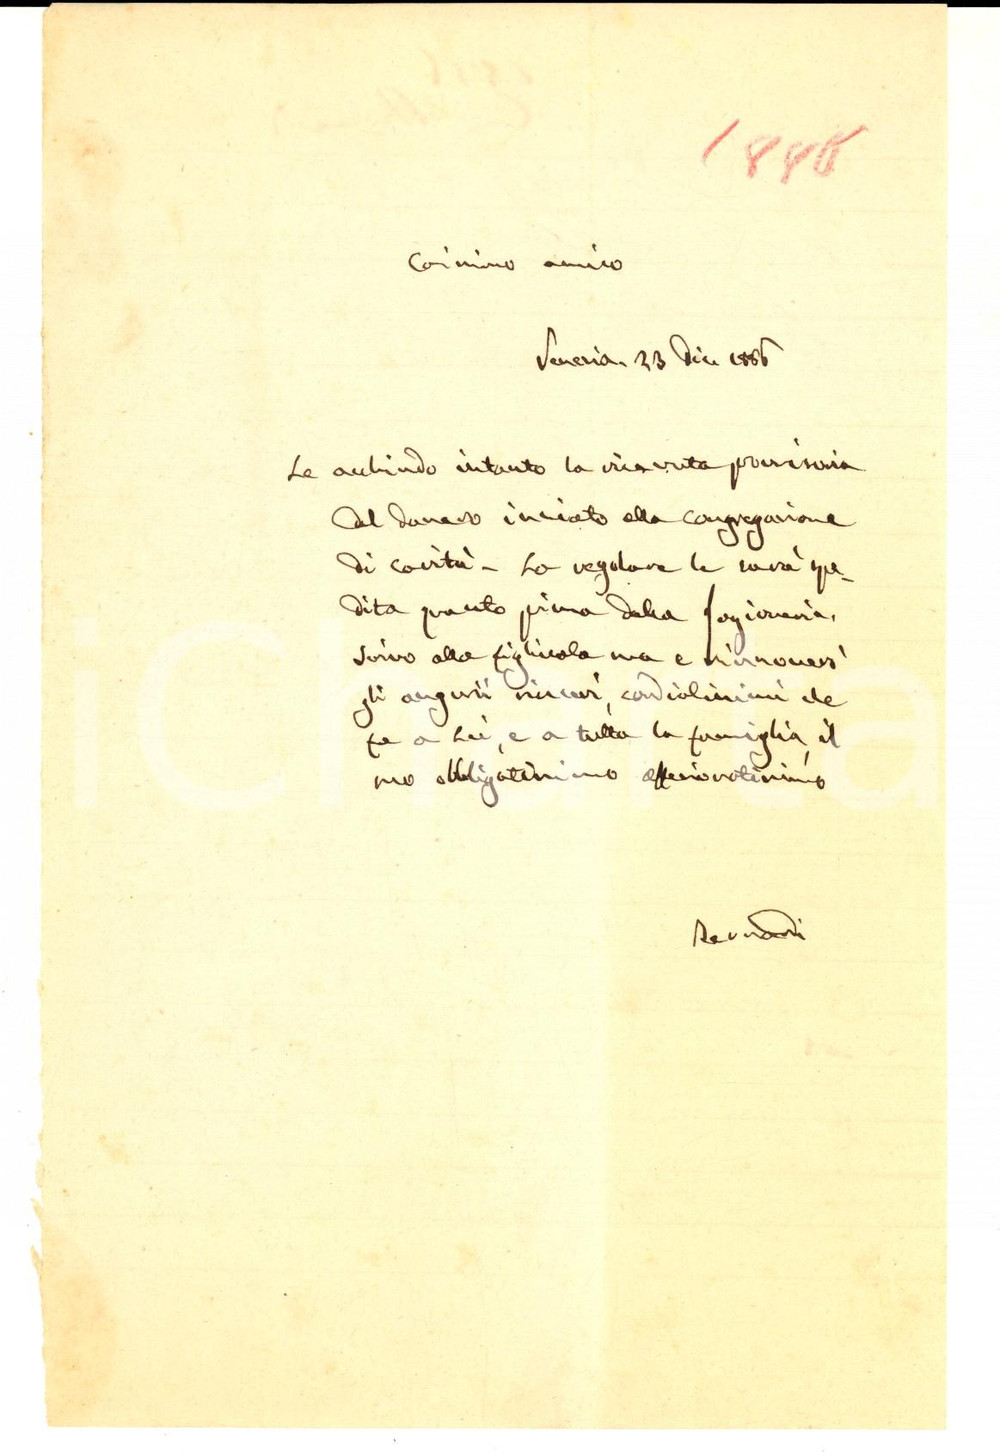 188
Carissimo amico
Venezia. 23 Dic. 1886
Le acchiudo intanto la ricevuta provvisoria
del danaro inviato alla Congregazione
di carità - La regolare le sarà spe-
dita quanto prima dalla Ragioneria.
Scrivo alla figliuola mia e rinnovasi
gli augurii sinceri, cordialissimi che
fa a Lei, e a tutta la famiglia, il
suo obbligatissimo affezionatissimo
Bernardi